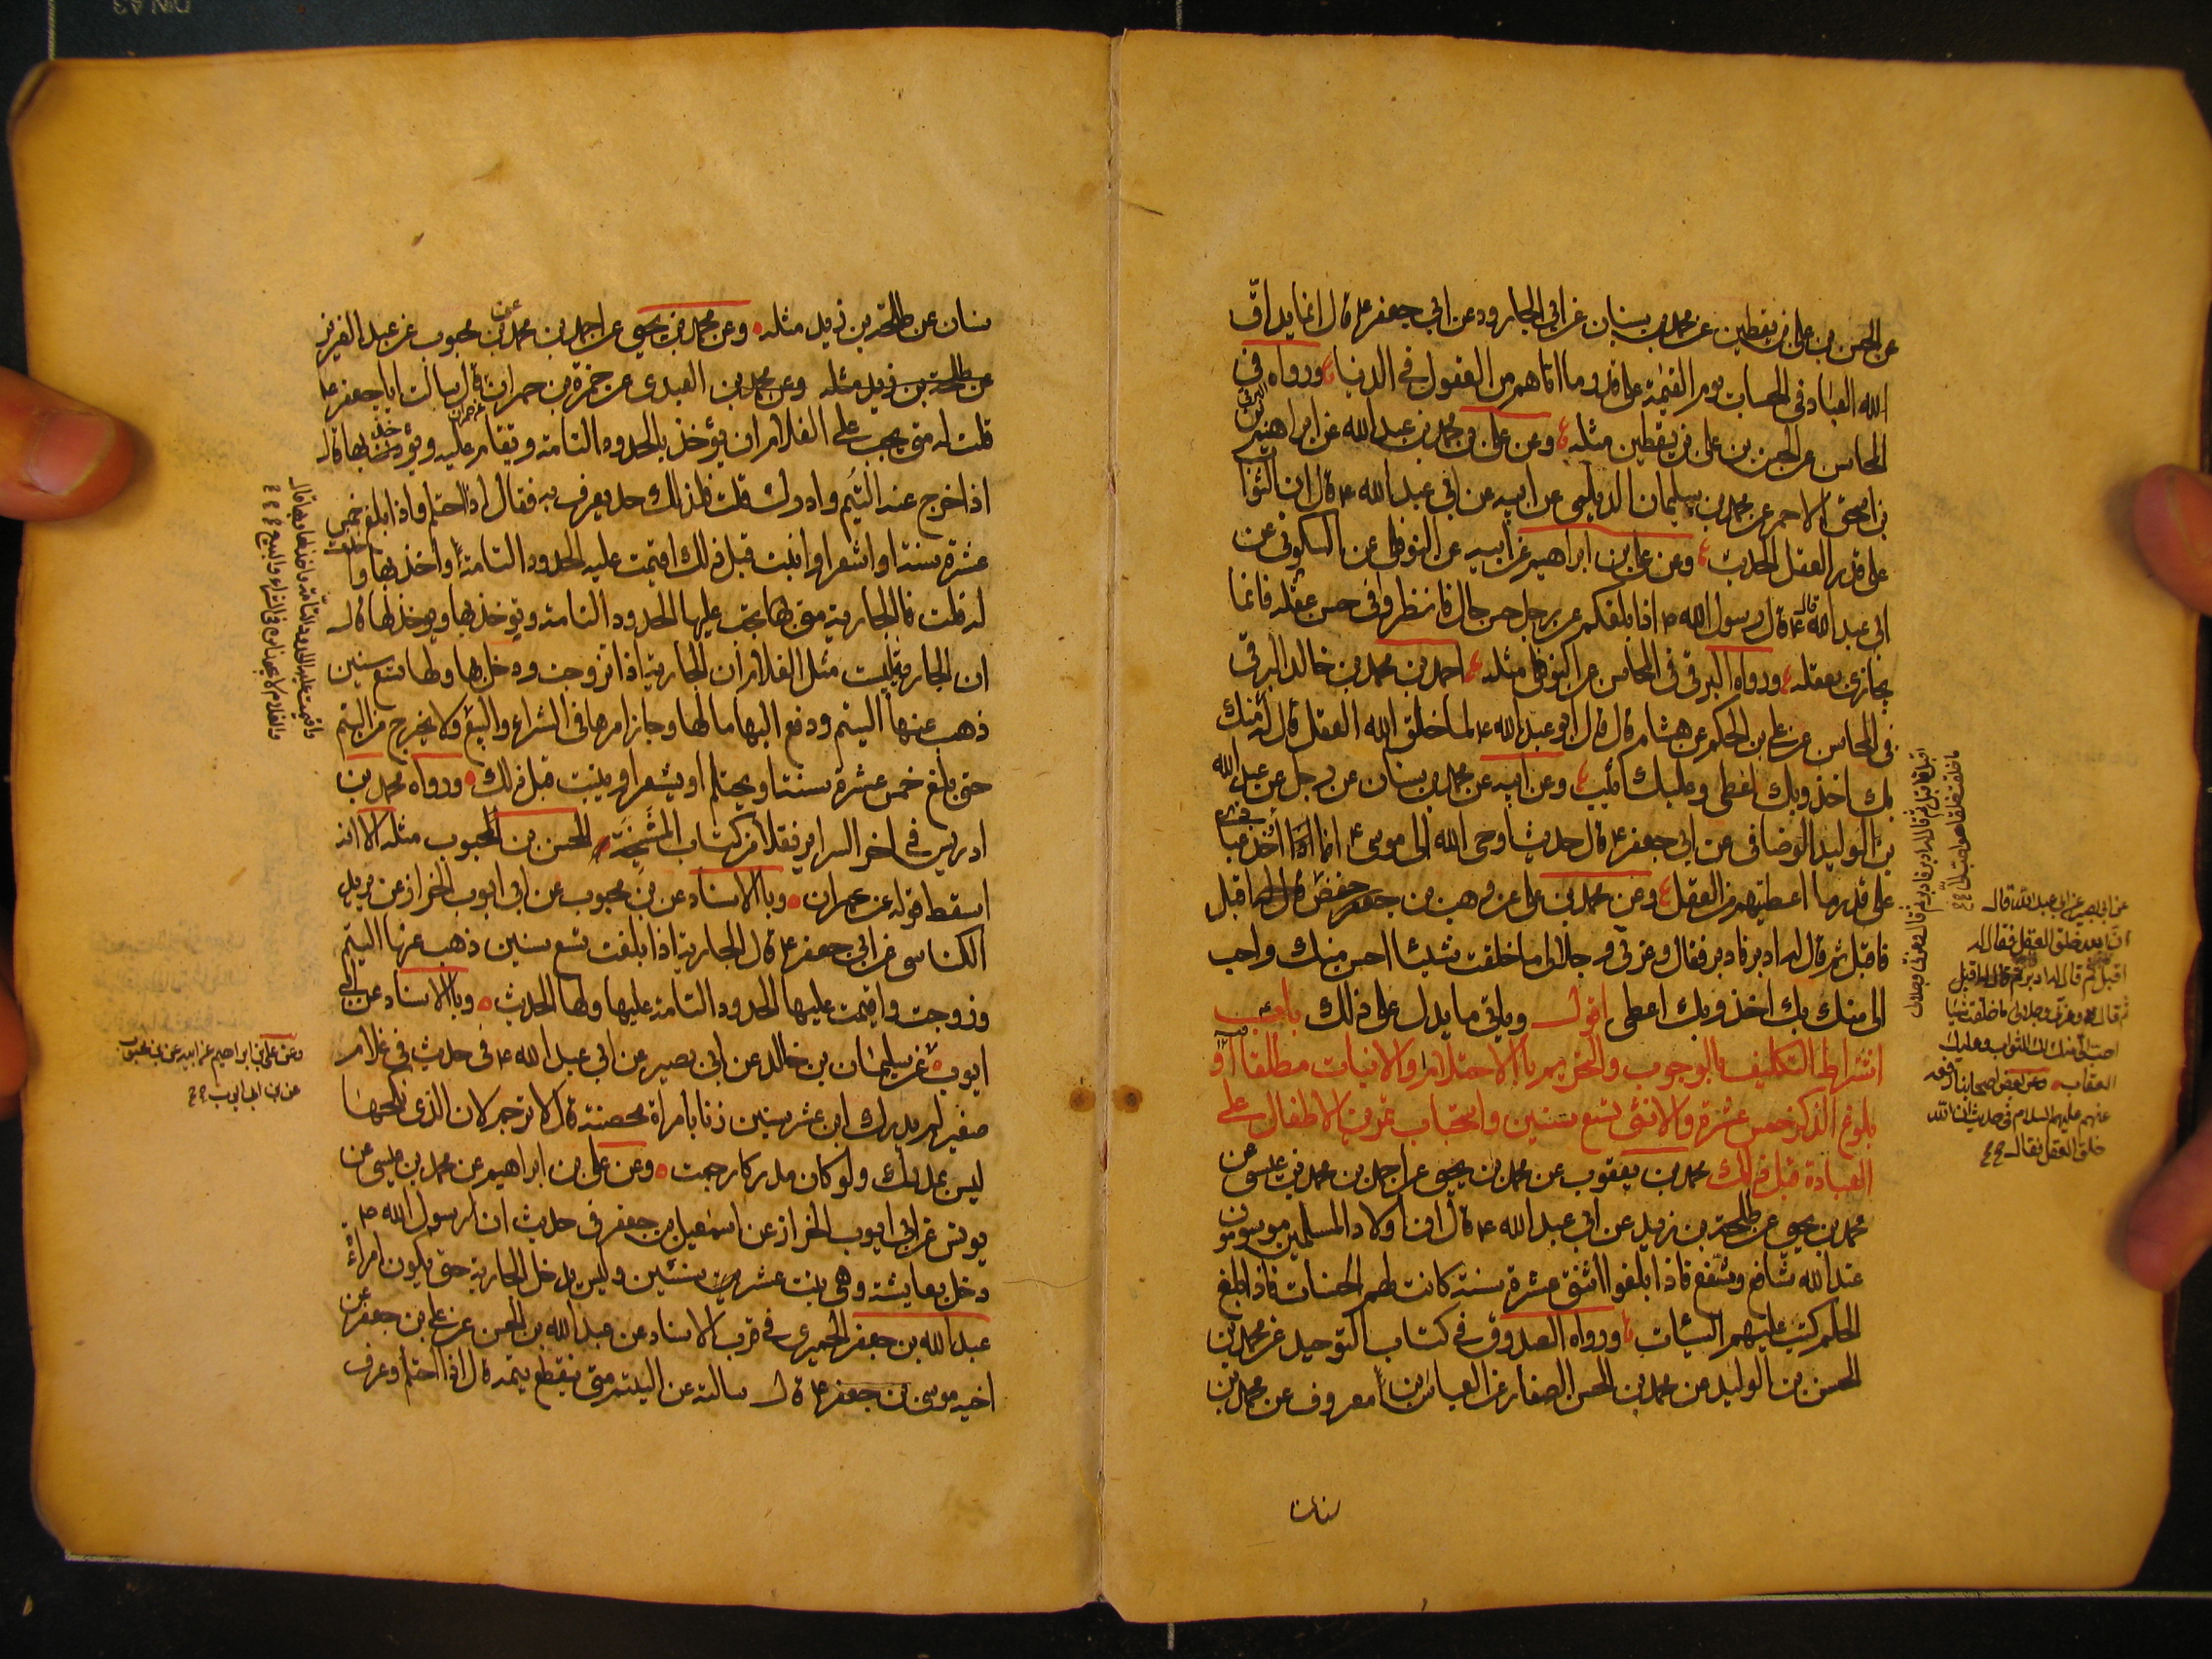 عن الحسن بن علي بن يقطين عن محمد بن سنان عن ابي الجارود عن ابي جعفر ع قال انما يداقّ
الله العباد في الحساب يوم القيمة على قدر ما اتاهم من العقول في الدنيا ورواه البرقي في
المحاسن عن الحسن بن علي بن يقطين مثله وعن علي بن محمد بن عبد الله عن ابراهيم بن
اسحق الاحمر عن محمد بن سليمان الديلمي عن ابيه عن ابي عبد الله ع قال ان الثواب
على قدر العقل الحديث وعن علي بن ابراهيم عن أبيه عن النوفلي عن السكوني عن
ابي عبد الله ع قال قال رسول الله ص اذا بلغكم عن رجل حسن حال فانظروا في حسن عقله فانما
يجازى بعقله ورواه البرقي في المحاسن عن النوفلي مثله احمد بن محمد بن خالد البرقي
في المحاسن عن علي بن الحكم عن هشام قال قال ابو عبد الله ع لما خلق الله العقل قال له
بك اخذ وبك اعطى وعليك اثيب وعن ابيه عن محمد بن سنان عن رجل عن عبيد الله
بن الوليد الوضافي عن ابي جعفر ع قال حديث اوحى الله الى موسى ع انا اؤاخذ عبادي
على قدر ما اعطيتهم من العقل وعن محمد بن علي عن وهب بن حفص اقبل
فاقبل ثم قال له ادبر فادبر فقال وعزتي وجلالى ما خلقت شيئا احسن منك واحب
الى منك بك اخذ وبك اعطى اقول وياتي ما يدل على ذلك باب
اشتراط التكليف بالوجوب والتحريم بالاحتلام او الانبات مطلقا او
بلوغ الذكر خمس عشرة والانثى تسع سنين واستحباب تمرين الاطفال على
العبادة قبل ذلك محمد بن يعقوب عن محمد بن يحيى عن احمد بن محمد بن عيسى عن
محمد بن يحيى عن طلحة بن زيد عن ابي عبد الله ع قال ان اولاد المسلمين موسومون
عند الله شافع ومشفع فاذا بلغوا اثنتي عشرة سنة كانت لهم الحسنات فاذا بلغوا
الحلم كتبت عليهم السيئات ورواه الصدوق في كتاب التوحيد عن محمد بن
الحسن بن الوليد عن محمد بن الحسن الصفار عن العباس بن معروف عن محمد بن
سنان
عن ابي بصير عن ابي عبد الله قال
ان الله خلق العقل فقال له
اقبل ثم قال له ادبر
ثم قال لا وعزتي وجلالي ما خلقت شيئا
احب الي منك لك الثواب وعليك
العقاب وعن بعض اصحابنا رفعه
عنهم عليهم السلام في حديث ان الله
خلق العقل فقال
سنان عن طلحة بن زيد مثله وعن محمد بن يحيى عن احمد بن محمد عن بن محبوب عن عبد العزيز
العبدى عن حمزة بن حمران عن حمران قال سالت ابا جعفر ع
قلت له متى يجب على الغلام ان يؤخذ بالحدود التامة وتقام عليه ويؤخذ بها قال
اذا خرج عنه اليتم وادرك قلت فلذلك حد يعرف به فقال اذا احتلم او اذا بلغ خمس
عشرة سنة او اشعر او انبت قبل ذلك اقيمت عليه الحدود التامة واخذ بها واخذت
له قلت فالجارية متى تجب عليها الحدود التامة وتؤخذ بها ويؤخذ لها قال
ان الجارية ليست مثل الغلام ان الجارية اذا تزوجت ودخل بها ولها تسع سنين
ذهب عنها اليتم ودفع اليها مالها وجاز امرها في الشراء والبيع ولا يخرج من اليتم
حتى يبلغ خمس عشرة سنة او يحتلم او يشعر او ينبت قبل ذلك ورواه محمد بن
ادريس في اخر السراير نقلا من كتاب المشيخة الحسن بن محبوب مثله الا انه
اسقط قوله عن حمران وبالاسناد عن بن محبوب عن ابي ايوب الخزاز عن يزيد
الكناسى عن ابي جعفر ع قال الجارية اذا بلغت تسع سنين ذهب عنها اليتم
وزوجت واقيمت عليها الحدود التامة عليها ولها الحديث وبالاسناد عن ابي
ايوب عن سليمان بن خالد عن ابي بصير عن ابي عبد الله ع في حديث في غلام
صغير لم يدرك ابن عشر سنين زنا بامراة محصنة قال لا ترجم لان الذي نكحها
ليس بمدرك ولو كان مدركا رجمت وعن علي بن ابراهيم عن محمد بن عيسى عن
يونس عن ابي ايوب الخزاز عن اسمعيل بن جعفر في حديث ان رسول الله ص
دخل بعايشة وهي بنت عشر سنين وليس يدخل بالجارية حتى يكون امراة
عبد الله بن جعفر الحميري في قرب الاسناد عن عبد الله بن الحسن عن علي بن جعفر عن
اخيه موسى بن جعفر ع قال سالته عن اليتيم متى ينقطع يتمه قال اذا احتلم وعرف
واقيمت عليه الحدود التامة واخذ لها وبها قال
والغلام لا يجوز امره في الشراء والبيع
وعن علي بن ابراهيم عن ابيه عن بن محبوب
عن ابي ايوب